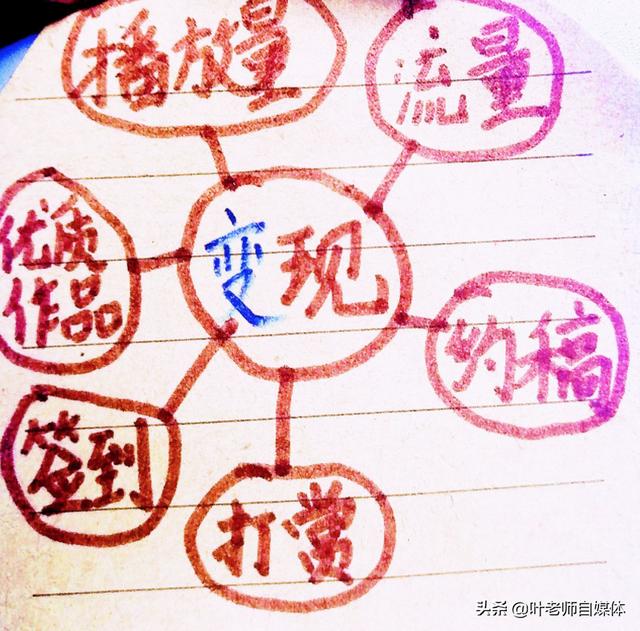 播放量
流量
优质
作品
变现
约稿
签到
打赏
头条 @叶老师自媒体